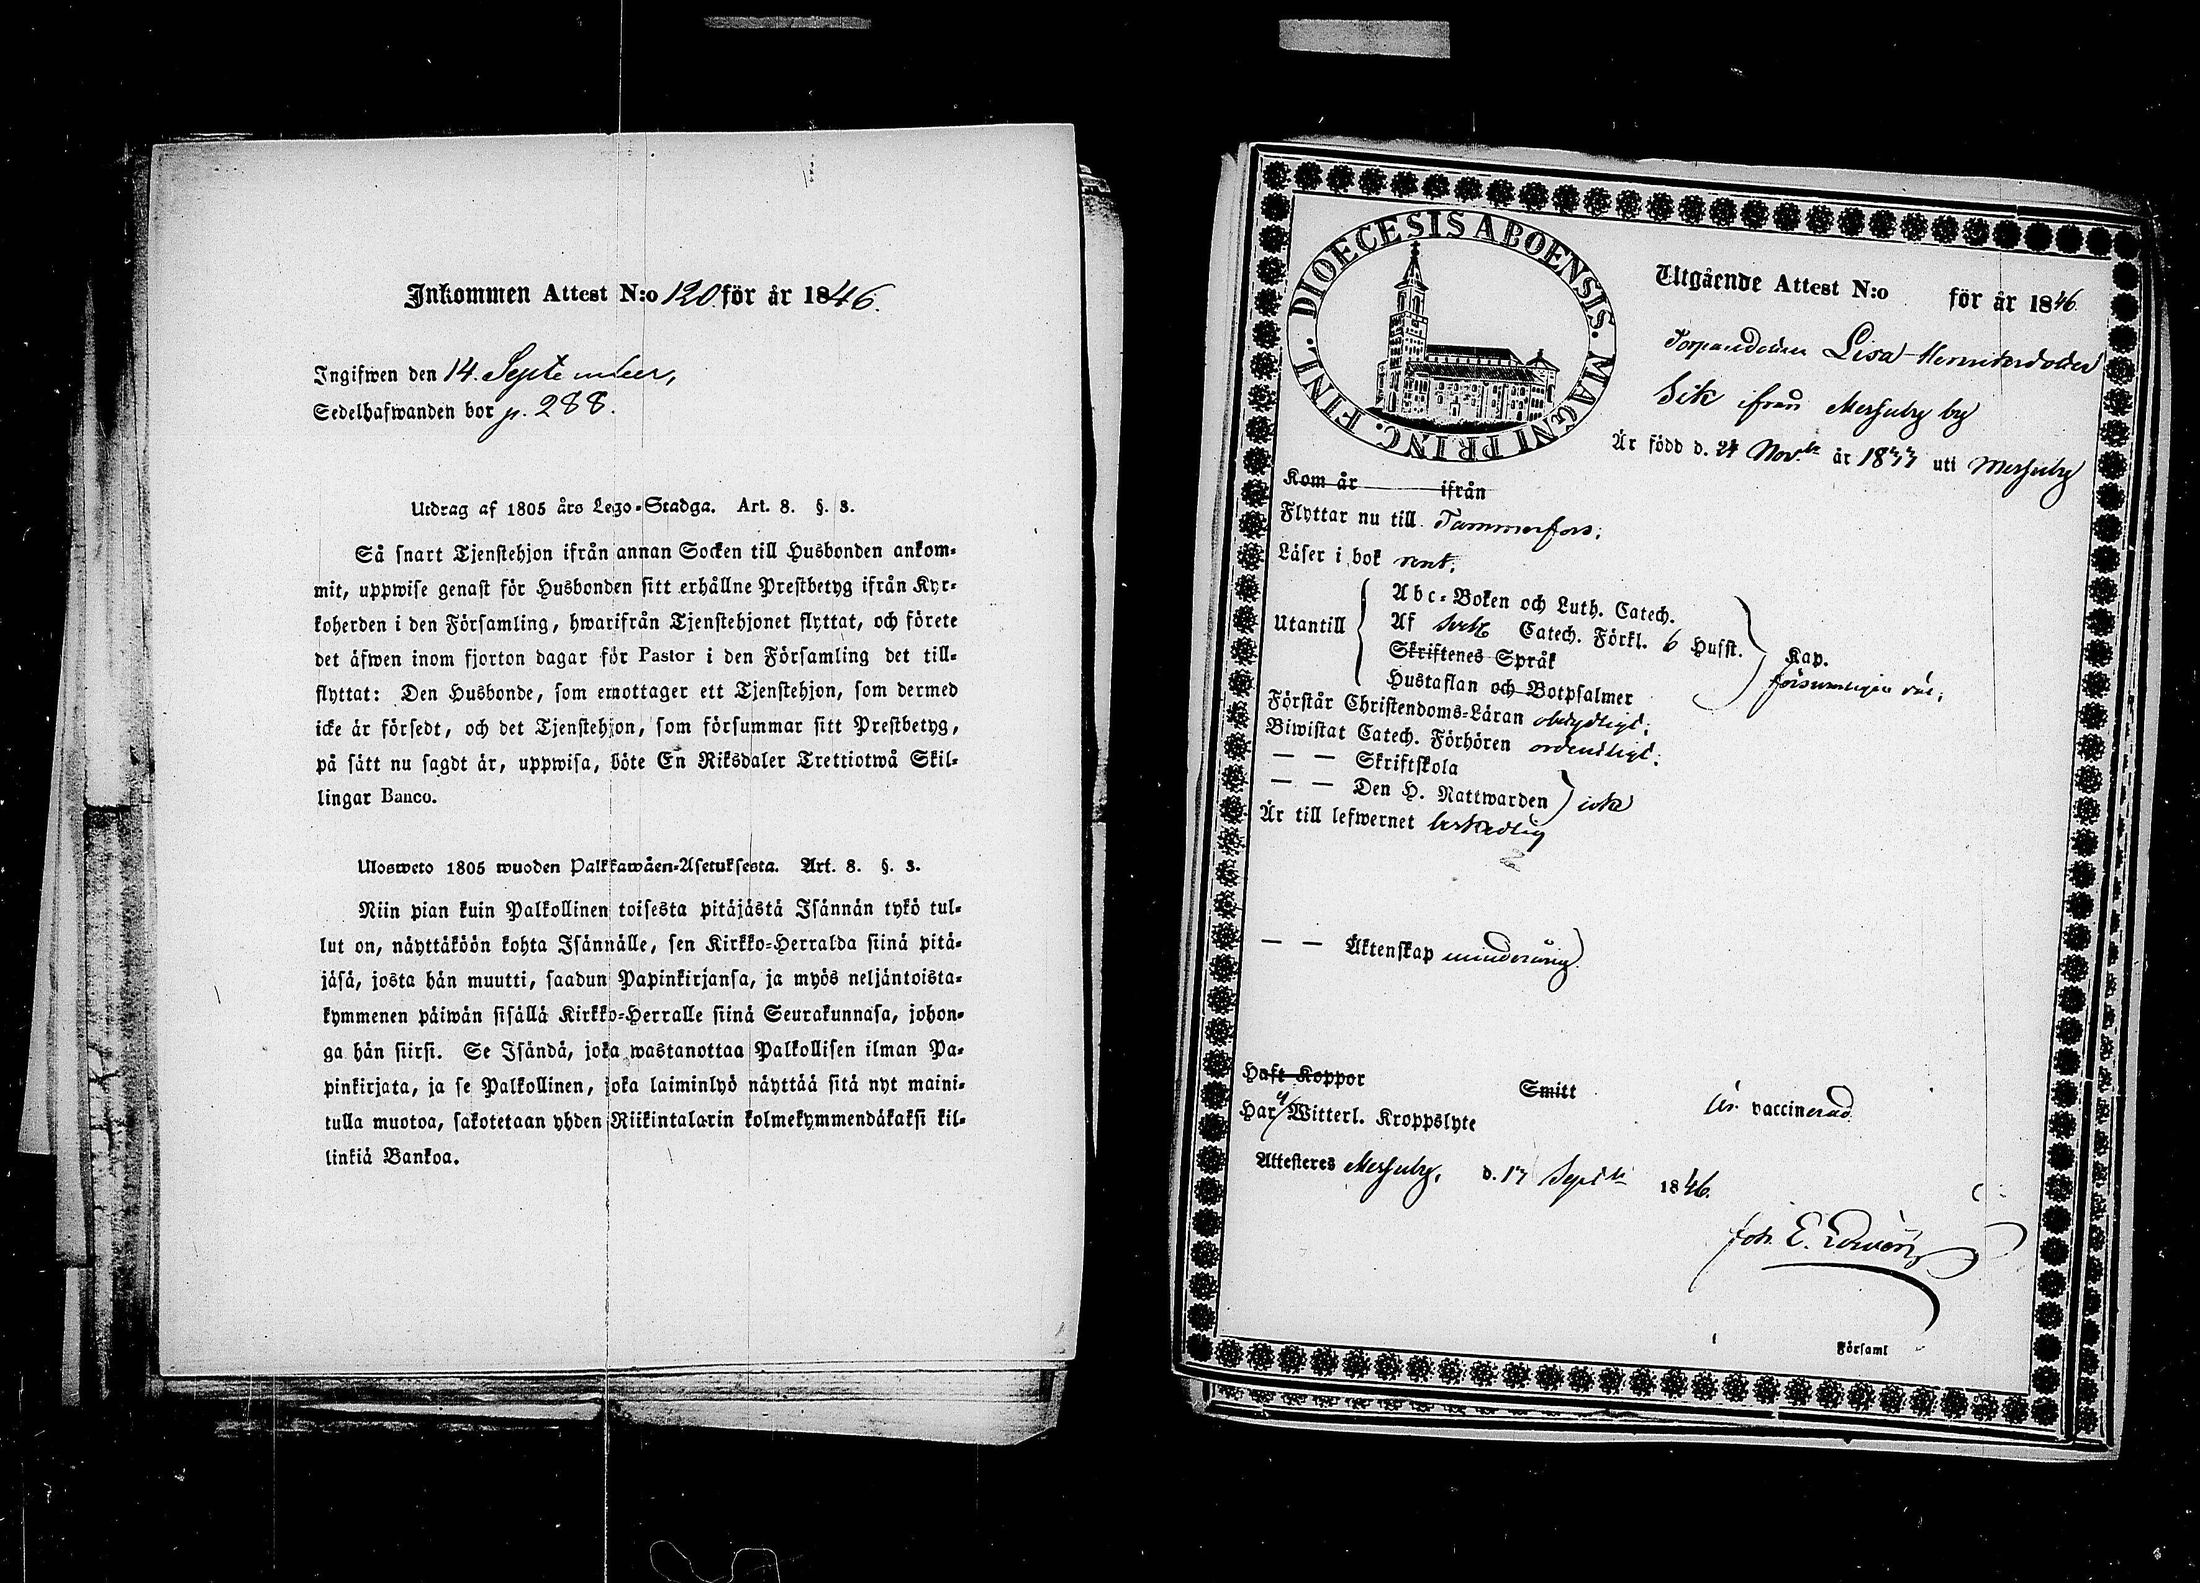 Inkommen Attest N:o 120 för år 1846.
Ingifwen den 14. September,
Sedelhafwanden bor p. 288.
Utdrag af 1805 års Lego-Stadga. Art. 8. §. 3.
Så snart Tjenstehjon ifrån annan Socken till Husbonden ankom-
mit, uppwise genast för Husbonden sitt erhållne Prestbetyg ifrån Kyr-
koherden i den Församling, hwarifrån Tjenstehjonet flyttat, och förete
det äfwen inom fjorton dagar för Pastor i den Församling det till-
flyttat: Den Husbonde, som emottager ett Tjenstehjon, som dermed
icke är försedt, och det Tjenstehjon, som försummar sitt Prestbetyg,
på sätt nu sagdt är, uppwisa, böte En Riksdaler Trettiotwå Skil-
lingar Banco.
Ulosweto 1805 wuoden Palkkawäen-Asetuksesta. Art. 8. §. 3.
Niin pian kuin Palkollinen toisesta pitäjästä Isännän tykö tul-
lut on, näyttäköön kohta Isännälle, sen Kirkko-Herralda siinä pitä-
jäsä, josta hän muutti, saadun Papinkirjansa, ja myös neljäntoista-
kymmenen päiwän sisällä Kirkko-Herralle siinä Seurakunnasa, johon-
ga hän siirsi. Se Isändä, joka wastanottaa Palkollisen ilman Pa-
pinkirjata, ja se Palkollinen, joka laiminlyö näyttää sitä nyt maini-
tulla muotoa, sakotetaan yhden Riikintalarin kolmekymmendäkaksi kil-
linkiä Bankoa.
DIOECESIS ABOENSIS. MAGNI PRINC. FINL.
Utgående Attest N:o för år 1846
Lisa
ifrån by
Är född d. 24 Nov. år 1833 uti
Kom år ifrån
Flyttar nu till Tammerfors.
Läser i bok rent.
Utantill
Abc-Boken och Luth. Catech.
Af Catech. Förkl. 6 Husst.
Skriftenes Språk
Hustaflan och Botpsalmer
Kap.
Förstår Christendoms-Läran
Biwistat Catech. Förhören ordentligt.
— — Skriftskola
— — Den H. Nattwarden icke
Är till lefwernet beskedlig
— — Äktenskap minderårig.
Haft Koppor Smitt är vaccinerad
Har ej Witterl. Kroppslyte
Attesteres d. 13 Sept. 1846.
Joh. E.
Församl